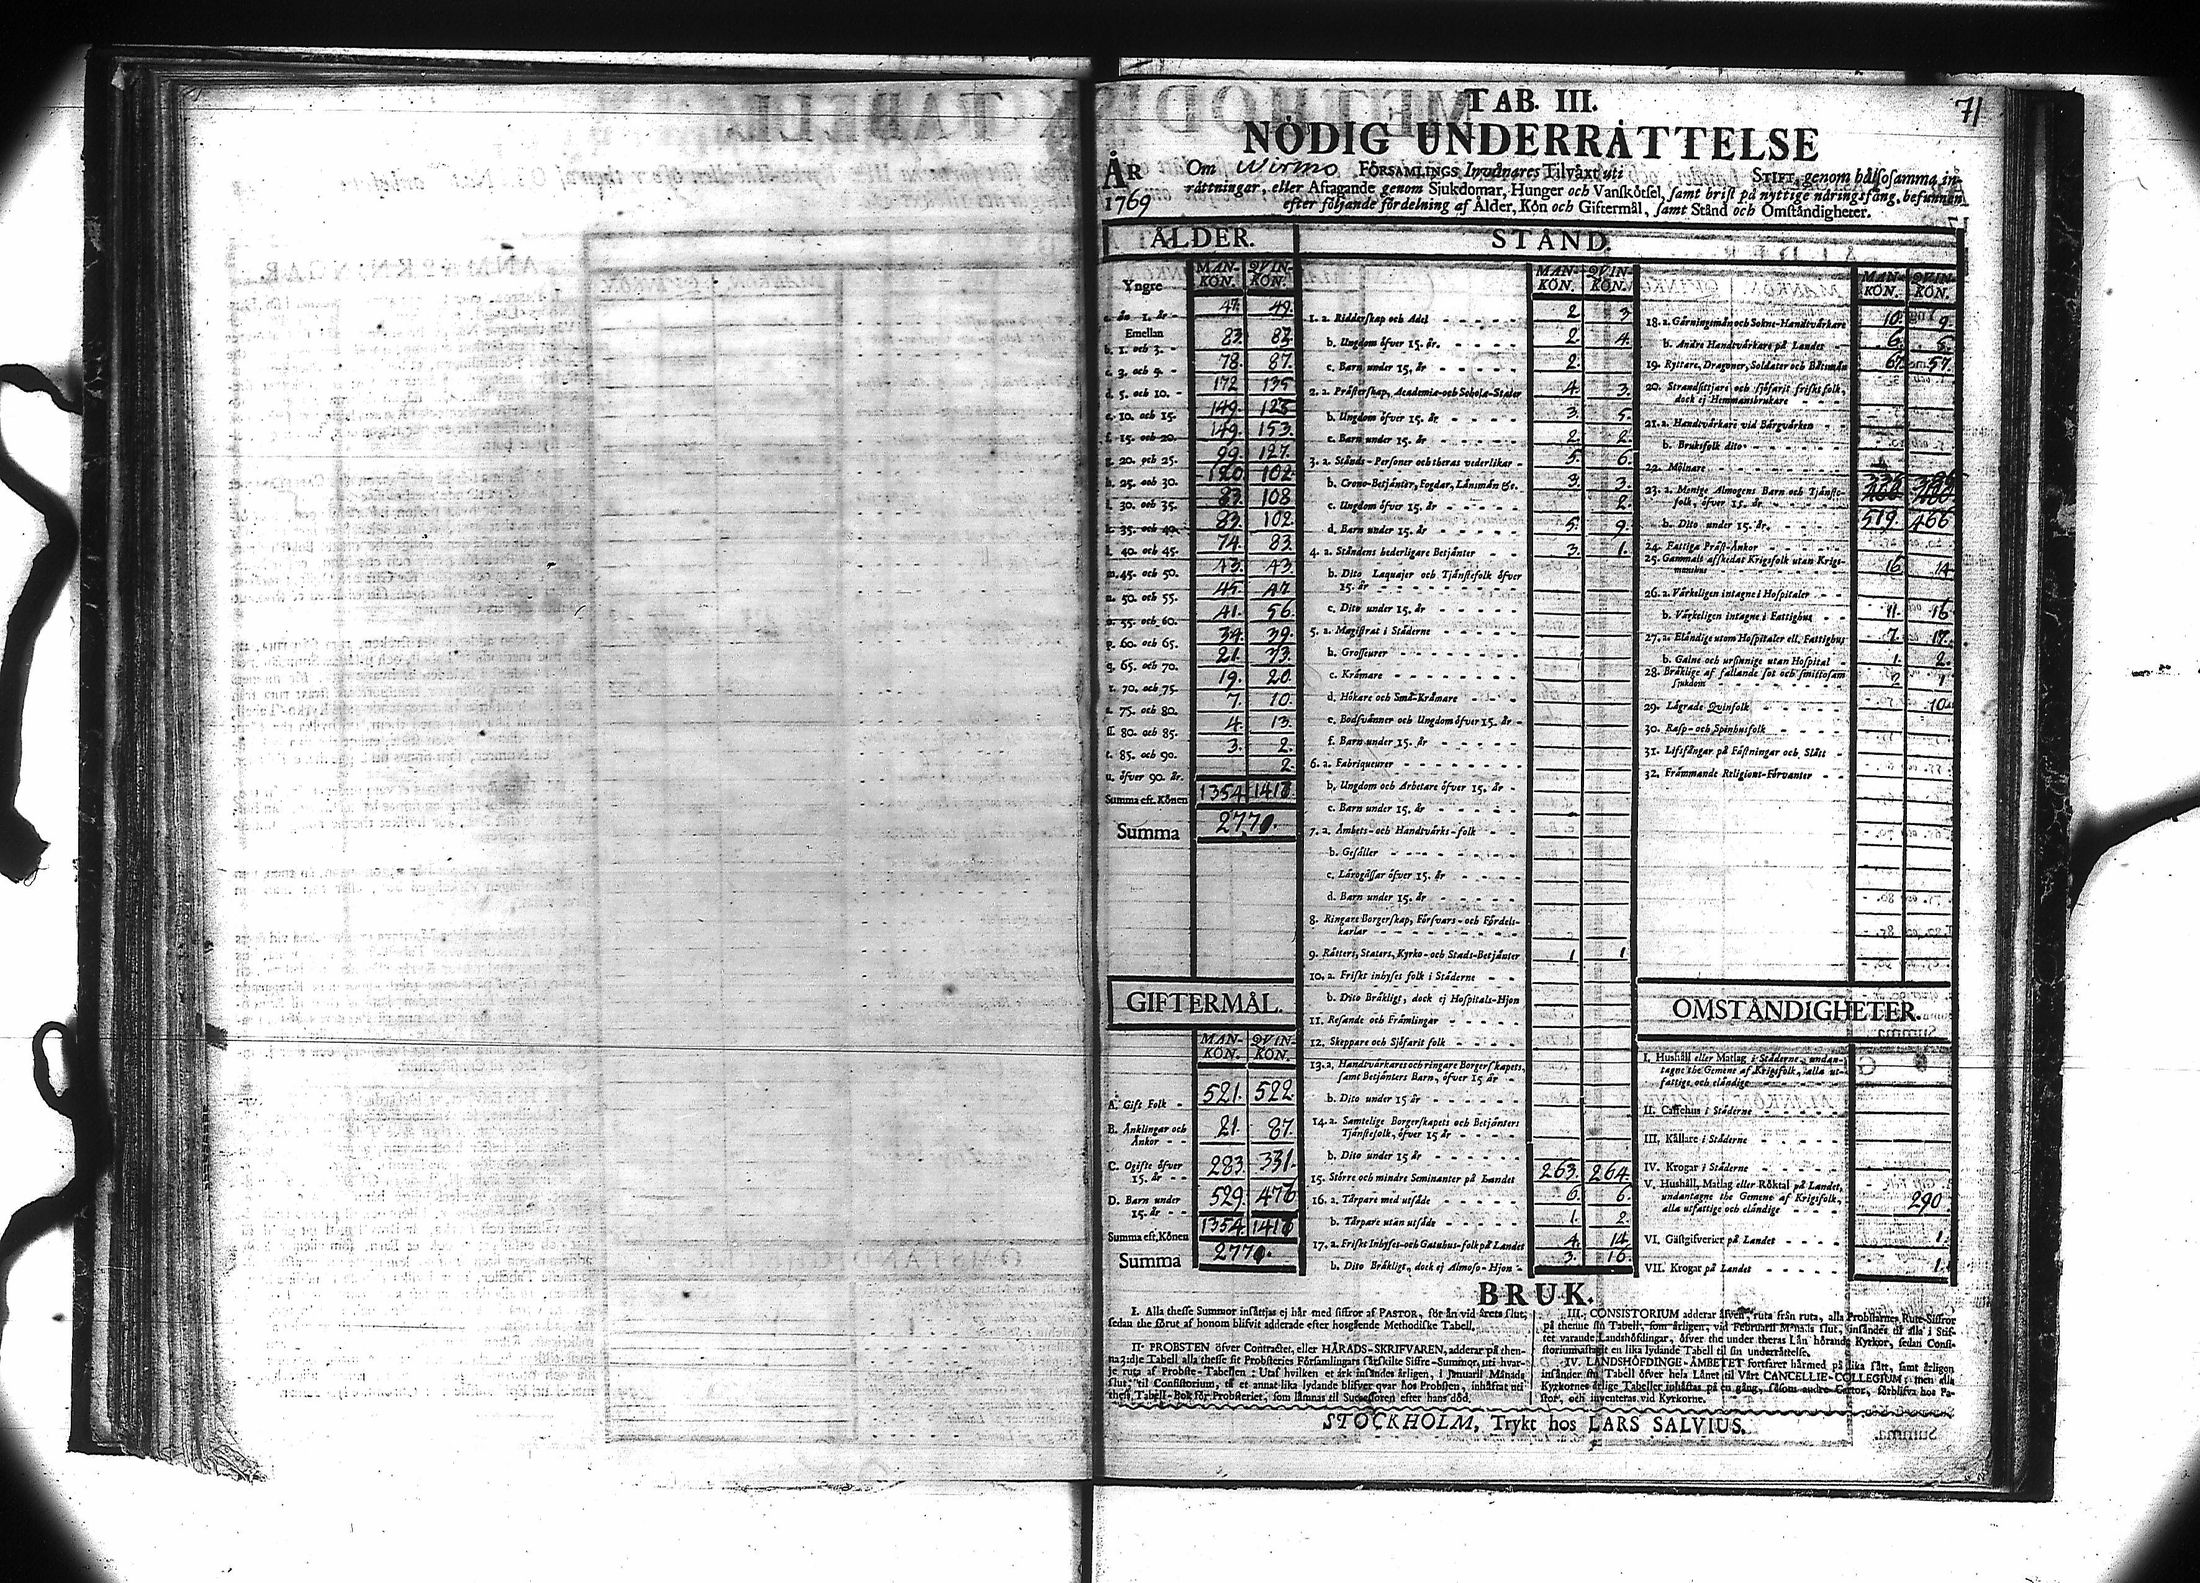 71
TAB. III.
NÖDIG UNDERRÄTTELSE
ÅR 1769
Om Wirmo FÖRSAMLINGS Invånares Tilväxt uti STIFT, genom hälsosamma in-
rättningar, eller Aftagande genom Sjukdomar, Hunger och Vanskötsel, samt brist på nyttige näringsfång, befunnen
efter följande fördelning af Ålder, Kön och Giftermål, samt Stånd och Omständigheter.
ÅLDER.
MAN-KÖN. QVIN-KÖN.
Yngre
a. än 1. år - 47. 49.
Emellan
b. 1. och 3. - 83. 82.
c. 3. och 5. - 78. 87.
d. 5. och 10. - 172 135
e. 10. och 15. 149. 123
f. 15. och 20. 149. 153.
g. 20. och 25. 99. 127.
h. 25. och 30. 120. 102
i. 30. och 35. 83. 108
k. 35. och 40. 83. 102.
l. 40. och 45. 74. 83.
m. 45. och 50. 43. 43.
n. 50. och 55. 45. 47.
o. 55. och 60. 41. 56.
p. 60. och 65. 34. 39.
q. 65. och 70. 21. 33.
r. 70. och 75. 19. 20.
s. 75. och 80. 7. 10.
ss. 80. och 85. 4. 13.
t. 85. och 90. 3. 2.
u. öfver 90. år. 2.
Summa eft. Könen 1354
Summa
GIFTERMÅL.
MAN-KÖN. QVIN-KÖN.
A. Gift Folk - 521. 522.
B. Änklingar och
Änkor - - 21. 87.
C. Ogifte öfver
15. år - - 283. 331.
D. Barn under
15. år - - 529. 476
Summa eft. Könen 1354.
Summa
STÅND.
MAN-KÖN. QVIN-KÖN.
1. a. Ridderskap och Adel 2 3
b. Ungdom öfver 15. år. 2. 4.
c. Barn under 15. år 2.
2. a. Prästerskap, Academiæ-och Scholæ-Stater 4. 3.
b. Ungdom öfver 15. år 3. 5.
c. Barn under 15. år 2. 2.
3. a. Stånds-Personer och theras vederlikar - 5. 6.
b. Crono-Betjänter, Fogdar, Länsmän &c. 3. 3.
c. Ungdom öfver 15. år 2.
d. Barn under 15. år 5. 9.
4. a. Ståndens hederligare Betjänter 3. 1.
b. Dito Laquajer och Tjänstefolk öfver
15. år
c. Dito under 15. år
5. a. Magistrat i Städerne
b. Grosseurer
c. Krämare
d. Hökare och Små-Krämare
e. Bodsvänner och Ungdom öfver 15. år -
f. Barn under 15. år
6. a. Fabriqueurer
b. Ungdom och Arbetare öfver 15. år -
c. Barn under 15. år
7. a. Ämbets-och Handtvärks-folk
b. Gesäller
c. Lärogåssar öfver 15. år
d. Barn under 15. år
8. Ringare Borgerskap, Försvars-och Fördels-
karlar
9. Rätters, Staters, Kyrko-och Stads-Betjänter 1 1
10. a. Friskt inhyses folk i Städerne
b. Dito Bräkligt, dock ej Hospitals-Hjon
11. Resande och Främlingar
12. Skeppare och Sjöfarit folk
13. a. Handtvärkares och ringare Borgerskapets,
samt Betjänters Barn, öfver 15 år
b. Dito under 15 år
14. a. Samtelige Borgerskapets och Betjänters
Tjänstefolk, öfver 15 år
b. Dito under 15 år
15. Större och mindre Seminanter på Landet 263. 264.
16. a. Tårpare med utsäde 6. 6.
b. Tårpare utan utsäde 1. 2.
17. a. Friskt Inhyses-och Gatuhus-folk på Landet 4. 14
b. Dito Bräkligt, dock ej Almoso-Hjon - 3. 16.
MAN-KÖN. QVIN-KÖN.
18. a. Gärningsmän och Sokne-Handtvärkare 10. 9.
b. Andre Handtvärkare på Landet 6. 6.
19. Ryttare, Dragoner, Soldater och Båtsmän 67. 57.
20. Strandsittjare och sjöfarit friskt folk,
dock ej Hemmansbrukare
21. a. Handtvärkare vid Bärgvärken
b. Bruksfolk dito
22. Mölnare
23. a. Menige Almogens Barn och Tjänste-
folk, öfver 15. år
b. Dito under 15. år. 519. 466
24. Fattiga Präst-Änkor
25. Gammalt afskedat Krigsfolk utan Krigs-
mantals 16 14
26. a. Värkeligen intagne i Hospitaler
b. Värkeligen intagne i Fattighus 11. 16.
27. a. Eländige utom Hospitaler ell. Fattighus 7. 17.
b. Galne och ursinnige utan Hospital 1. 2.
28. Bräklige af fallande sot och smittosam
sjukdom 2 1
29. Lägrade Qvinfolk 10.
30. Rasp-och Spinhusfolk
31. Lifsfångar på Fästningar och Slått
32. Främmande Religions-Förvanter
OMSTÄNDIGHETER.
I. Hushåll eller Matlag i Städerne, undan-
tagne the Gemene af Krigsfolk, alla ut-
fattige och eländige
II. Caffehus i Städerne
III. Källare i Städerne
IV. Krogar i Städerne
V. Hushåll, Matlag eller Röktal på Landet,
undantagne the Gemene af Krigsfolk,
alla utfattige och eländige 290.
VI. Gästgifverier på Landet 1.
VII. Krogar på Landet 1.
BRUK.
I. Alla thesse Summor insättjas ej här med siffror af PASTOR, för än vid årets slut,
sedan the förut af honom blifvit adderade efter hosgående Methodiske Tabell.
II. PROBSTEN öfver Contractet, eller HÄRADS-SKRIFVAREN, adderar på then-
na 3:dje Tabell alla thesse sit Probsteries Församlingars särskilte Siffre-Summor, uti hvar-
je ruta af Probste-Tabellen: Utaf hvilken et ärk insändes årligen, i Januarii Månads
slut, til Consistorium, så et annat lika lydande blifver qvar hos Probsten, inhäftat uti
thess Tabell-Bok för Probsteriet, som lämnas til Successoren efter hans död.
III. CONSISTORIUM adderar äfven, ruta från ruta, alla Probstarnes Rute-Siffror
på thenne sin Tabell, som årligen, vid Februarii Månads slut, insändes til alla i Stif-
tet varande Landshöfdingar, öfver the under theras Län hörande Kyrkor, sedan Consi-
storium aftagit en lika lydande Tabell til sin underrättelse.
IV. LANDSHÖFDINGE-ÄMBETET fortfarer härmed på lika sätt, samt årligen
insänder sin Tabell öfver hela Länet til Vårt CANCELLIE-COLLEGIUM; men alla
Kyrkornes årlige Tabeller inhäftas på en gång, såsom andre Cartor, förblifva hos Pa-
stor, och inventeras vid Kyrkorne.
STOCKHOLM, Trykt hos LARS SALVIUS.